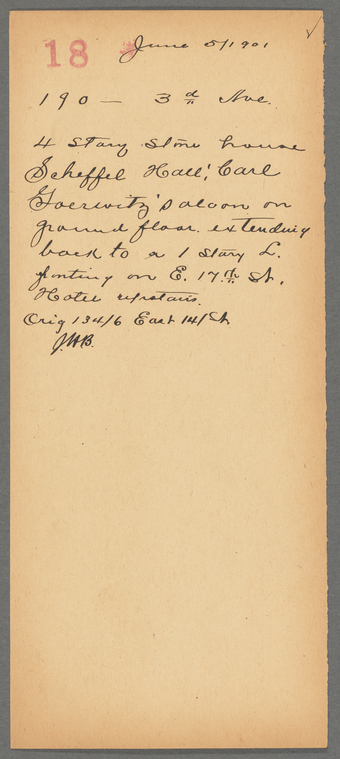 18 June 5/1901
190 — 3d Ave.
4 story stone house
Scheffel Hall, Carl
Goerwitz' saloon on
ground floor extending
back to a 1 story L.
fronting on E. 17th St.
Hotel upstairs.
Orig 134/6 East 14/St
J.W.B.